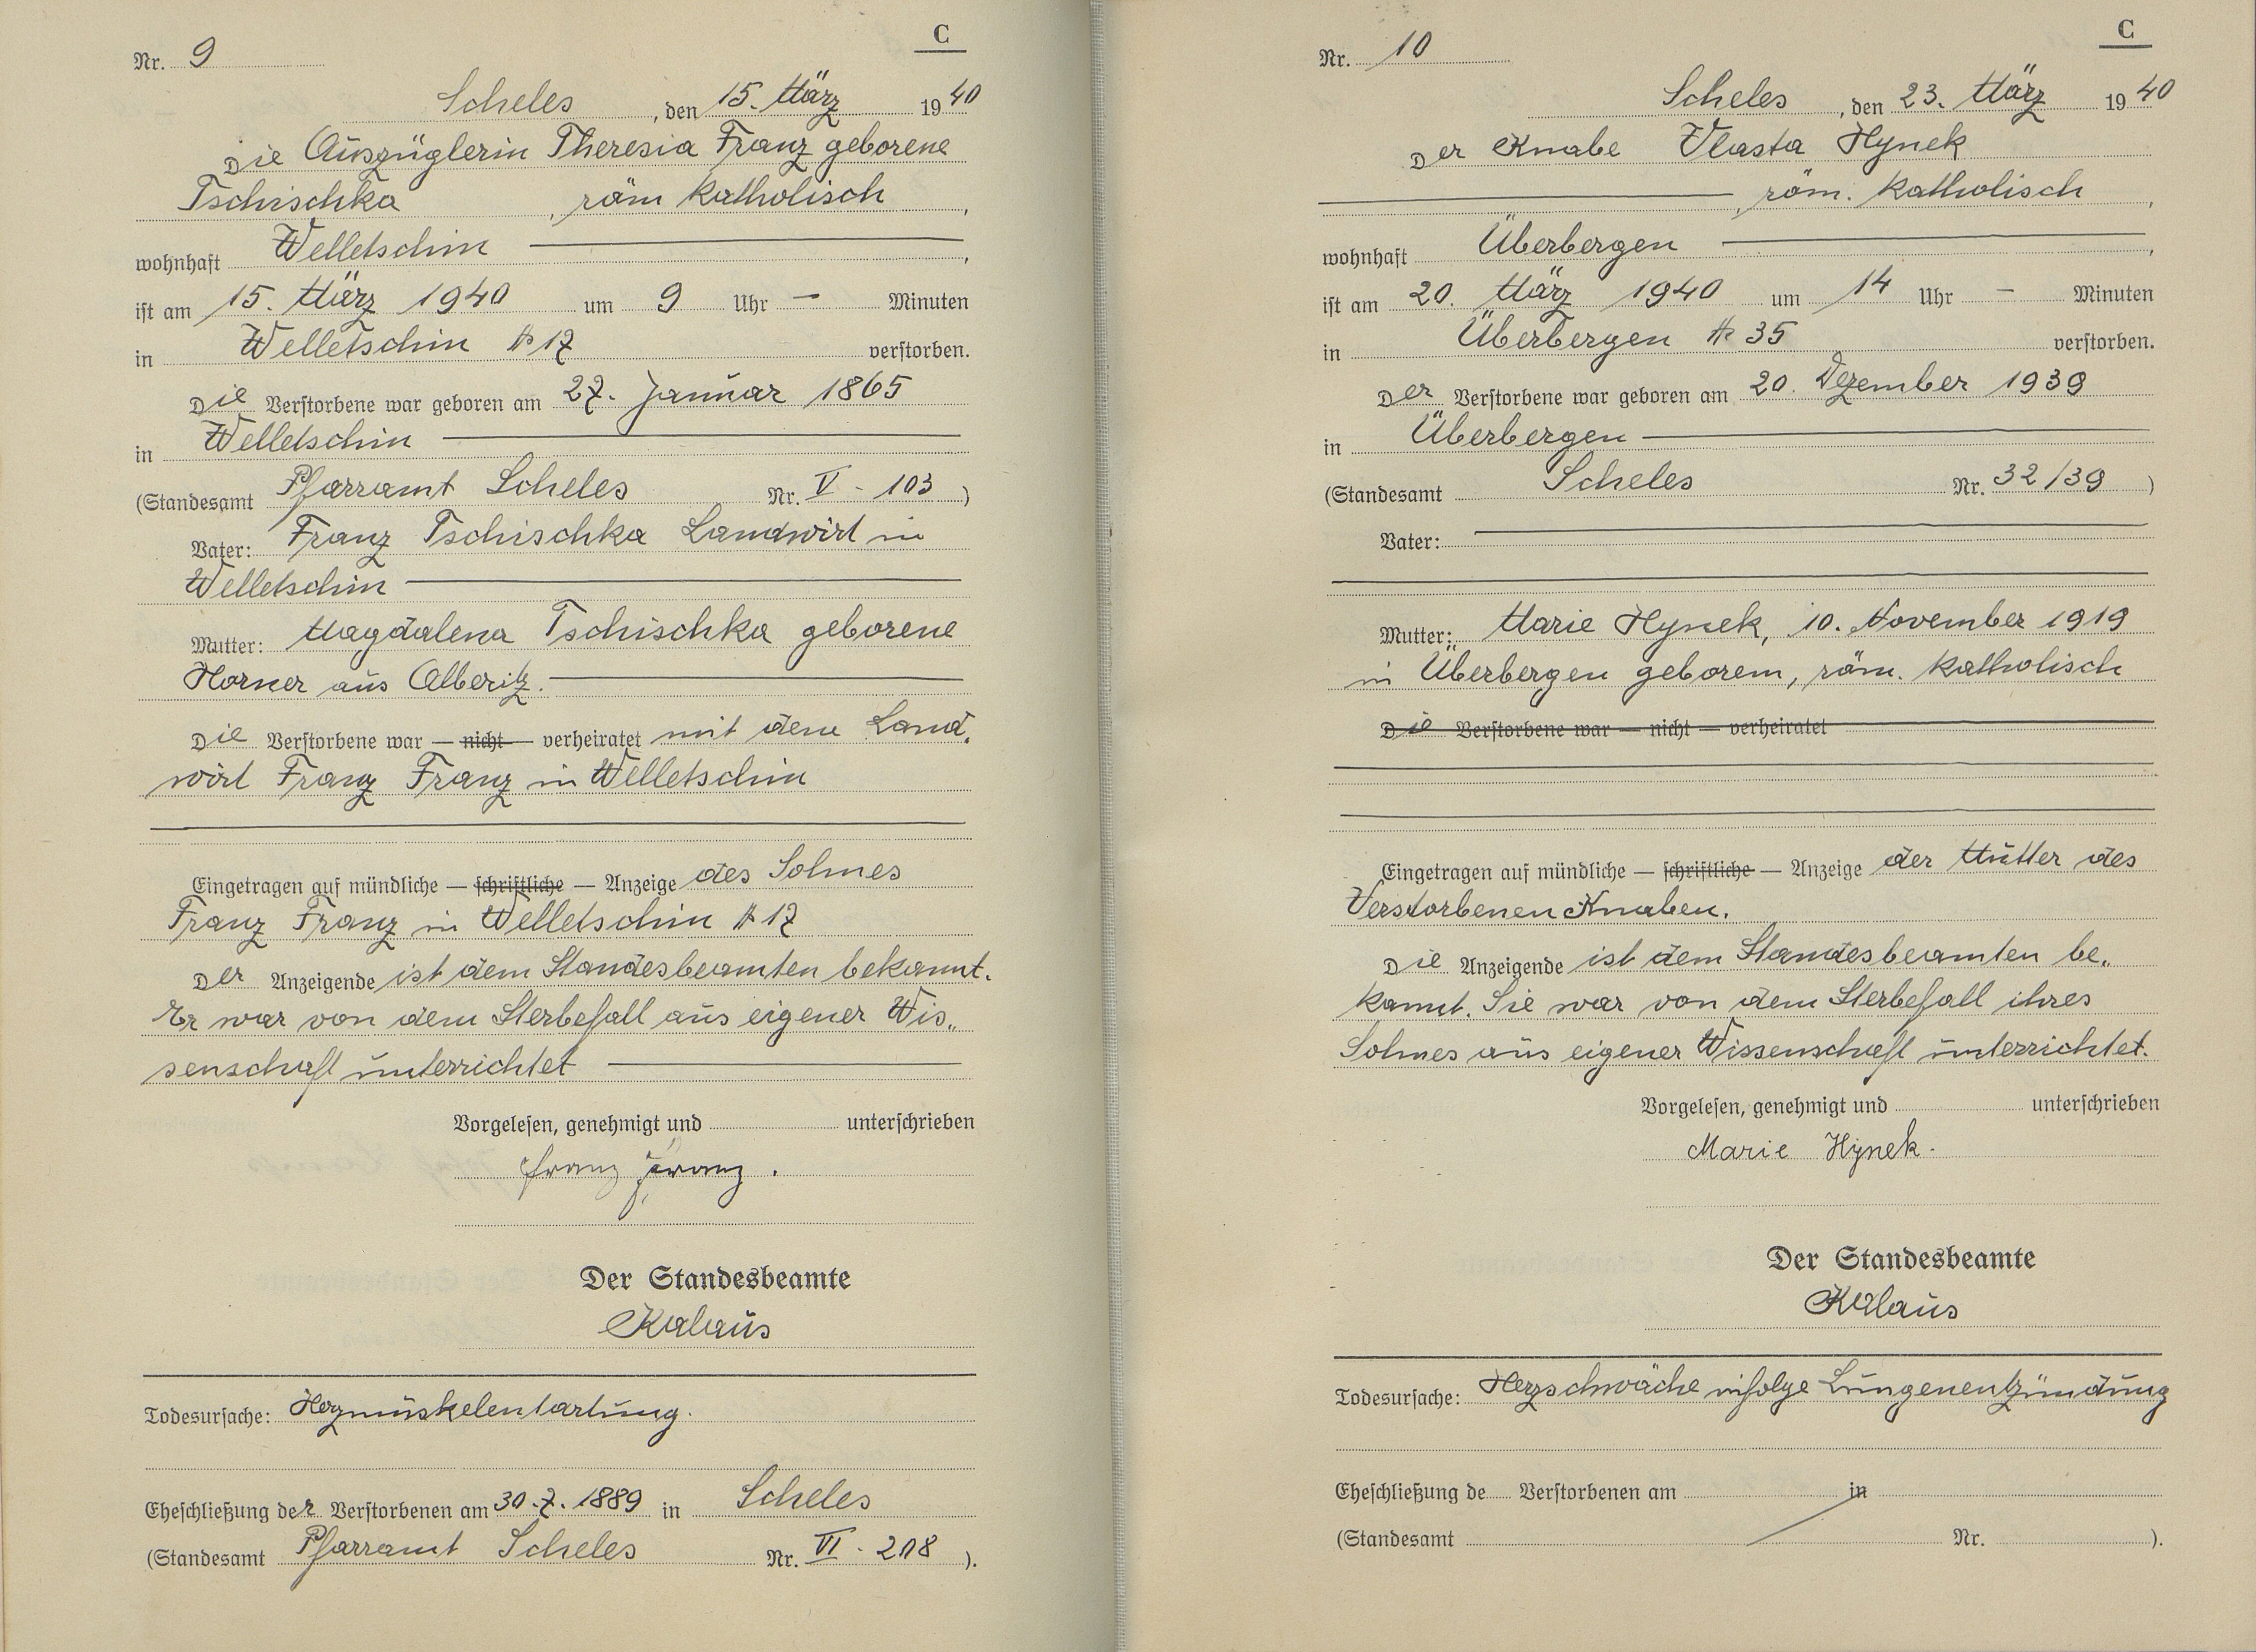 C
Nr. 9
Scheles, den 15. März 1940
Die Auszüglerin Theresia Franz geborene
Tschischka, röm katholisch,
wohnhaft Welletschin,
ist am 15. März 1940 um 9 Uhr — Minuten
in Welletschin № 17 verstorben.
Die Verstorbene war geboren am 27. Januar 1865
in Welletschin
(Standesamt Pfarramt Scheles Nr. V - 103)
Vater: Franz Tschischka Landwirt in
Welletschin
Mutter: Magdalena Tschischka geborene
Horner aus Alberitz.
Die Verstorbene war — nicht — verheiratet mit dem Land„
wirt Franz Franz in Welletschin
Eingetragen auf mündliche — schriftliche — Anzeige des Sohnes
Franz Franz in Welletschin № 17
Der Anzeigende ist dem Standesbeamten bekannt.
Er war von dem Sterbefall aus eigener Wis„
senschaft unterrichtet
Vorgelesen, genehmigt und unterschrieben
Franz Franz.
Der Standesbeamte
Kalaus
Todesursache: Herzmuskelentartung.
Eheschließung der Verstorbenen am 30.7.1889 in Scheles
(Standesamt Pfarramt Scheles Nr. VI - 208).
C
Nr. 10
Scheles, den 23. März 1940
Der Knabe Vlasta Hynek
, röm. katholisch,
wohnhaft Überbergen,
ist am 20. März 1940 um 14 Uhr — Minuten
in Überbergen № 35 verstorben.
Der Verstorbene war geboren am 20. Dezember 1939
in Überbergen
(Standesamt Scheles Nr. 32/39)
Vater:
Mutter: Marie Hynek, 10. November 1919
in Überbergen geborem, röm. katholisch
Die Verstorbene war — nicht — verheiratet
Eingetragen auf mündliche — schriftliche — Anzeige der Mutter des
Verstorbenen Knaben.
Die Anzeigende ist dem Standesbeamten be„
kannt. Sie war von dem Sterbefall ihres
Sohnes aus eigener Wissenschaft unterrichtet.
Vorgelesen, genehmigt und unterschrieben
Marie Hynek.
Der Standesbeamte
Kalaus
Todesursache: Herzschwäche infolge Lungenentzündung
Eheschließung de Verstorbenen am in
(Standesamt Nr. ).